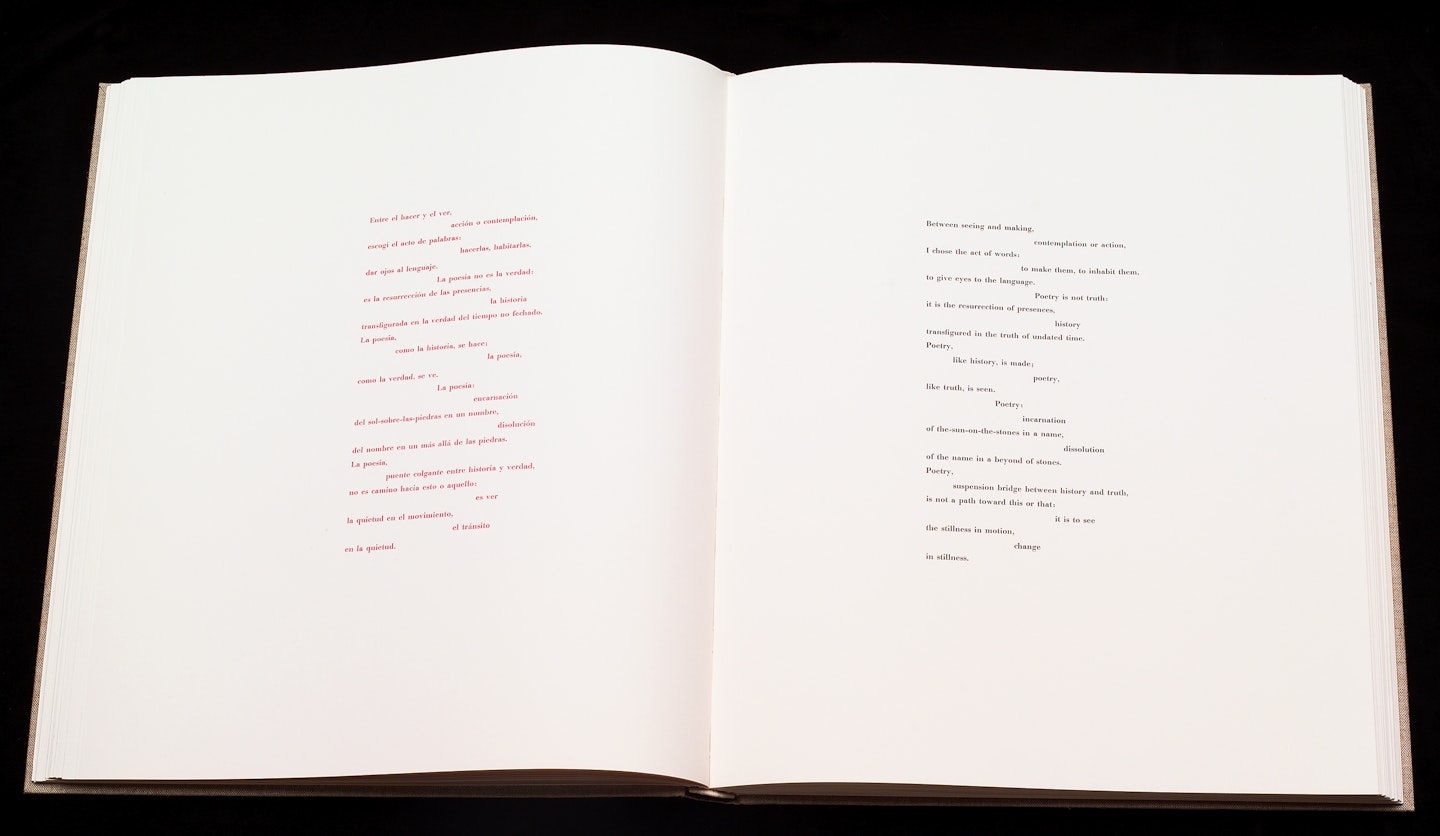 Entre el hacer y el ver,
acción o contemplación,
escogí el acto de palabras:
hacerlas, habitarlas,
dar ojos al lenguaje.
La poesía no es la verdad:
es la resurrección de las presencias,
la historia
transfigurada en la verdad del tiempo no fechado.
La poesía,
como la historia, se hace;
la poesía,
como la verdad, se ve.
La poesía:
encarnación
del sol-sobre-las-piedras en un nombre,
disolución
del nombre en un más allá de las piedras.
La poesía,
puente colgante entre historia y verdad,
no es camino hacia esto o aquello:
es ver
la quietud en el movimiento,
el tránsito
en la quietud.
Between seeing and making,
contemplation or action,
I chose the act of words:
to make them, to inhabit them,
to give eyes to the language.
Poetry is not truth:
it is the resurrection of presences,
history
transfigured in the truth of undated time.
Poetry,
like history, is made;
poetry,
like truth, is seen.
Poetry:
incarnation
of the-sun-on-the-stones in a name,
dissolution
of the name in a beyond of stones.
Poetry,
suspension bridge between history and truth,
is not a path toward this or that:
it is to see
the stillness in motion,
change
in stillness.